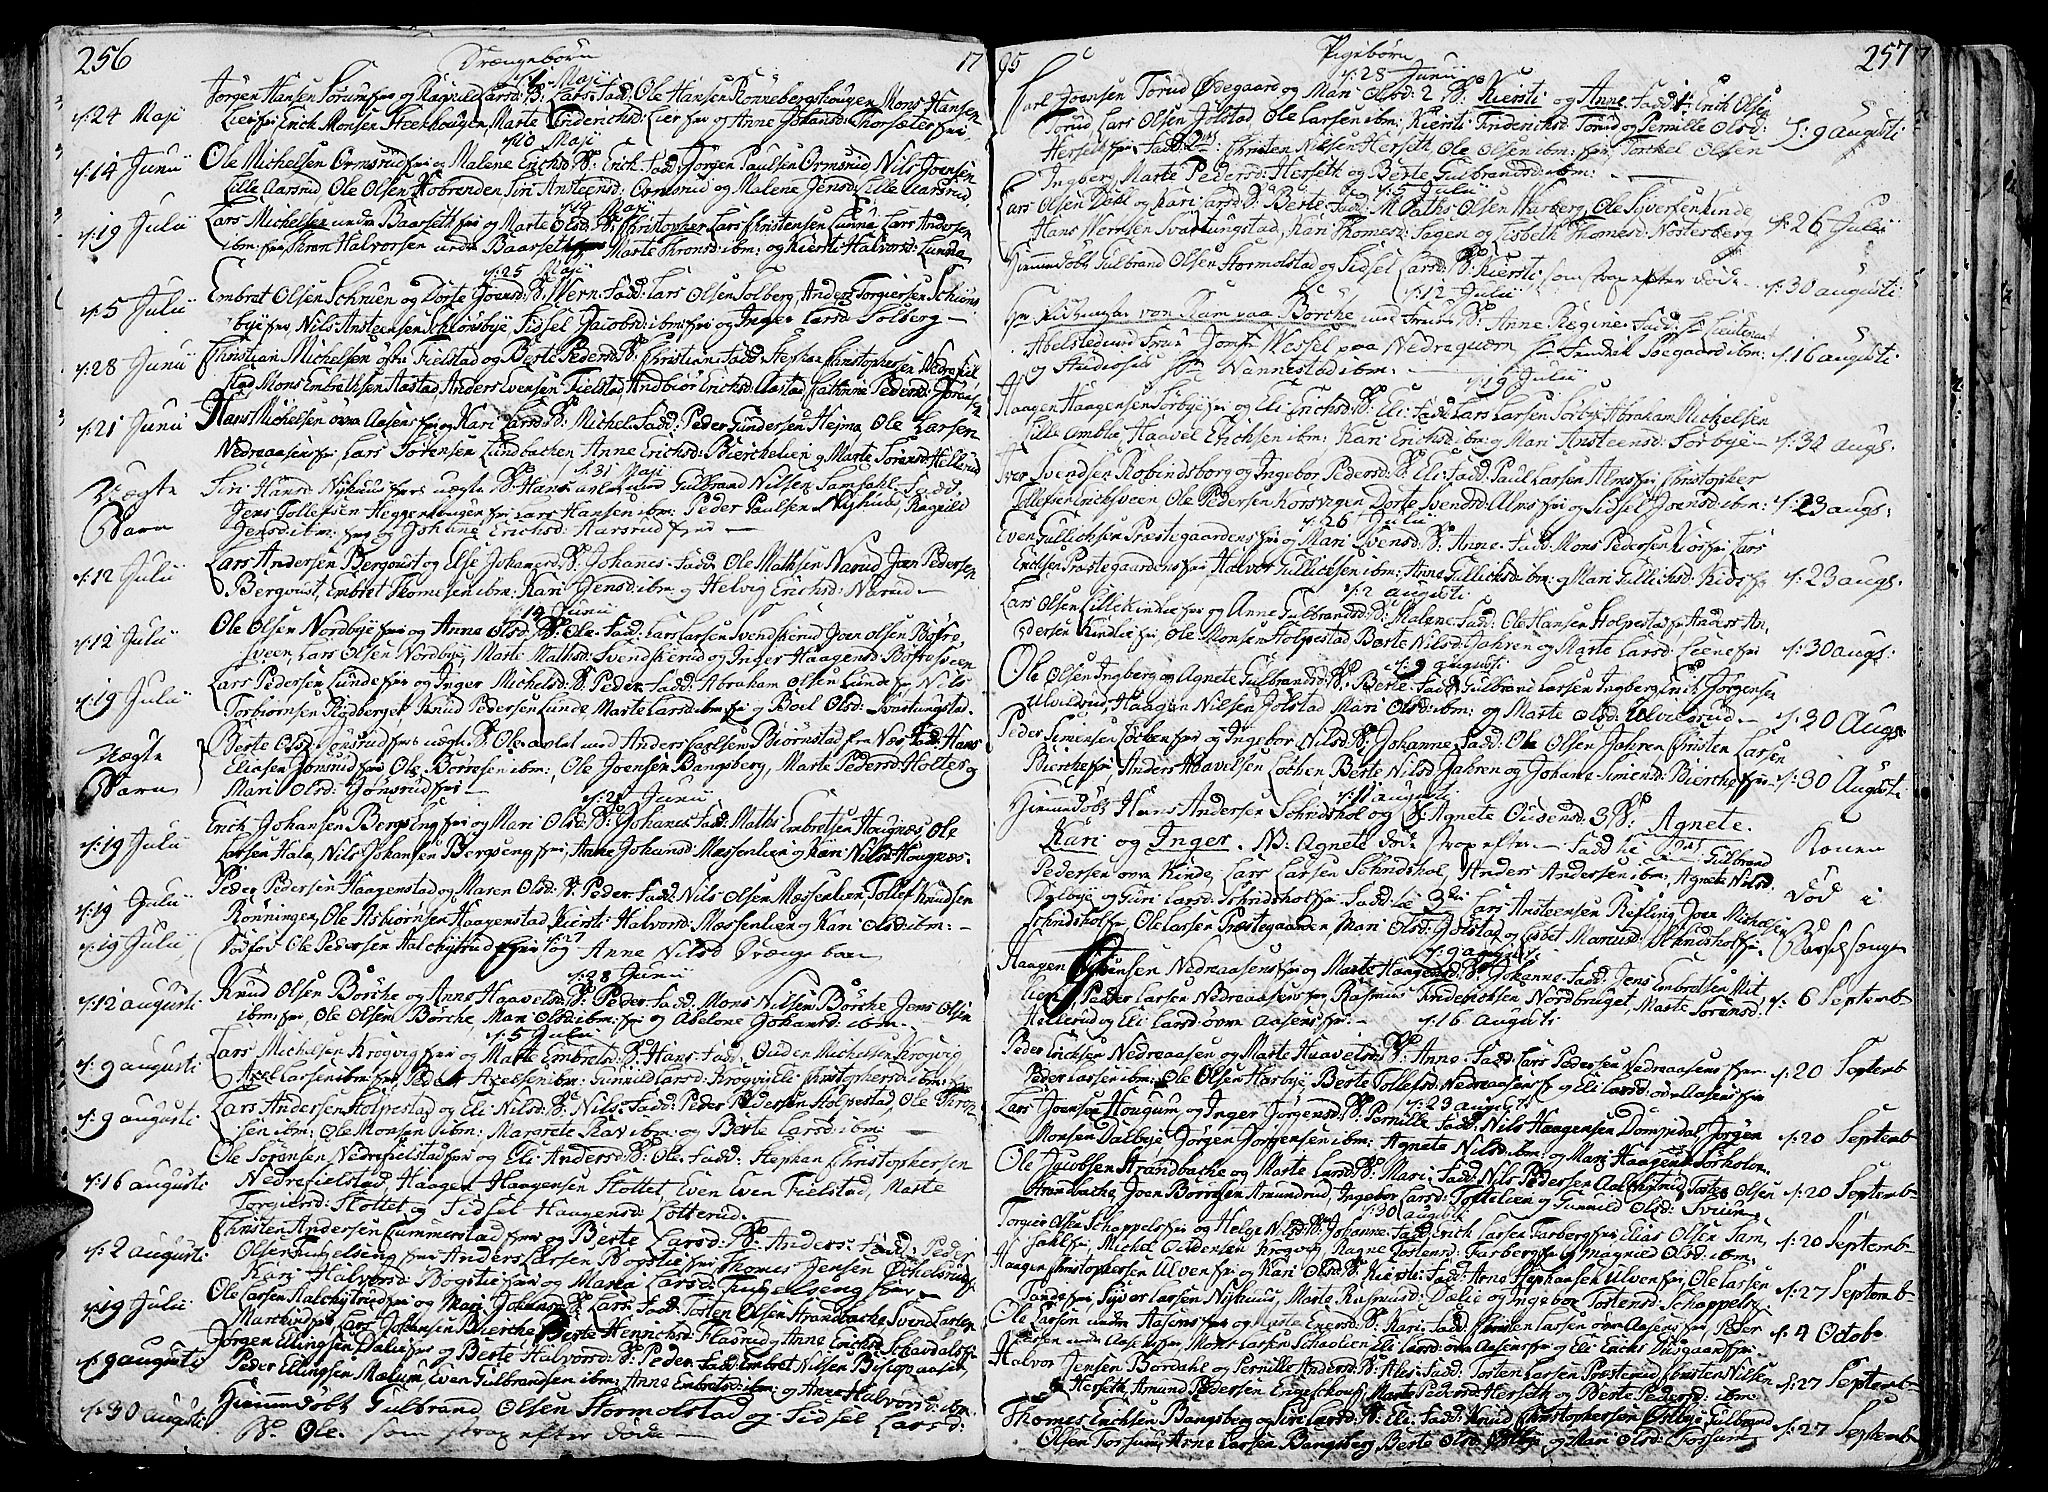 256 Drængebørn 17
d: 1 Maji
Jørgen Hansen Sørum fri og Ragnild Larsd: B: Lars. Fadd: Ole Hansen Rønnebergshougen, Mons Hansen
d: 24 Maji Lier fri, Erich Monsen Steenhougen, Marte Friderichsd: Lier fri og Anne Johansd: Thorsæter fri
d: 10 Maji
Ole Michelsen Ormsrud fri og Malene Erichsd: B: Erich. Fadd: Jørgen Paulsen Ormsrud Nils Joensen
d: 14 Junii Lille Aarsrud, Ole Olsen, Siri Ansteensd: Ormsrud og Malene Jensd: Lille Aarsrud.
d: 19 Maji
Lars Michelsen under Baarseth fri og Marte Olsd: B: Christopher Lars Christensen Lunna, Lars Andersen
d: 19 Julii ibm: fri Thron Halvorsen under Baarseth Marte Thronsd: ibm: og Kierste Halvorsd: Lunna
d: 25 Maji
Embret Olsen Schruen og Dorte Joensd: B: Wern. Fadd: Lars Olsen Solberg, Anders Torgiersen Schiøns
d: 5 Julii bye fri, Nils Ansteensen Schiønsbye, Sidsel Jacobsd: ibm: fri og Inger Larsd: Solberg
Christian Michelsen øfre Fielstad og Berte Pedersd: B: Christian Fadd: Stephan Christophersen Nedrefiel
d: 28 Junii stad Mons Embrethsen Aastad Anders Evensen Fielstad Andbiør Erichsd: Aastad Cathrine Pedersd:
Hans Michelsen øvre Aasen fri og Kari Larsd: B: Michel. Fadd: Peder Gundersen Hejma Ole Larsen
d: 21 Junii Nedreaasen fri, Lars Sørensen Lundbachen Anne Erichsd: Bierchelien og Marte Sørensd: Hellerud
d: 31 Maji
Uægte Siri Hansd: Nykuus fri uægte B: Hans avlet med Gulbrand Nilsen Samsahl. Fadd
Barn Jens Tollefsen Hegnerhougen fri Lars Hansen ibm: Peder Paulsen Nykuus, Ragnild
Jensd: ibm: fri og Johanne Erichsd: Aarsrud fri
Lars Andersen Berqvist og Else Johansd: B: Johanes. Fadd: Ole Mathsen Narud Joen Pedersen
d: 12 Julii Berqvist, Embret Thomesen ibm: Kari Jensd: ibm: og Helvig Erichsd: Narud
d: 14 Junii
Ole Olsen Nordbye fri og Anne Olsd: B: Ole. Fadd: Lars Larsen Svendskerud Joen Olsen Bøfre
d: 12 Julii sveen, Lars Olsen Nordbye, Marte Mathisd: Svendskerud og Inger Haagensd: Bøfresveen
Lars Pedersen Lunde fri og Inger Michelsd: B: Peder. Fadd: Abraham Olsen Lunde fri Nils
d: 19 Julii Torbiørnsen Rødberget Knud Pedersen Lunde, Marte Larsd: ibm: fri og Boel Olsd: Svartungstad.
Uægte Berte Olsd: Jønsrud fri uægte B: Ole avlet med Anders Carlsen Biørnstad fra Næs Fadd: Hans
Barn Eliasen Jønsrud fri Ole Borresen ibm: Ole Joensen Bangsberg, Marte Pedersd: Holter og
Mari Olsd: Jønsrud fri
d: 21 Junii
Erich Johansen Bergseng fri og Mari Olsd: B: Johanes. Fadd: Maths Embretsen Hougnæs Ole
d: 19 Julii Larsen Hala, Nils Johansen Bergseng fri, Anne Johansd: Mæssenlien og Kari Nilsd: Hougnæs.
Peder Pedersen Haagenstad og Maren Olsd: B: Peder. Fadd: Nils Olsen Mæssenlien Tollef Knudsen
d: 19 Julii Rønningen, Ole Asbiørnsen Haagenstad, Kiersti Halvorsd: Mæssenlien og Kari Olsd: ibm:
d: 19 Julii død før Ole Pedersen Aalchytrud fri og Anne Nilsd Drænge barn
d: 28 Junii
Knud Olsen Børche og Anne Haavelsd: B: Peder. Fadd: Mons Nilsen Børche Jens Olsen
d: 12 augusti ibm: fri, Ole Olsen Børche, Mari Olsd: ibm: fri og Abelone Johansd: ibm:
d: 5 Julii
Lars Michelsen Krogvig fri og Marte Embretsd: B: Hans. Fadd: Ouden Michelsen Krogvig
d: 9 augusti Axel Larsen ibm: fri, Peder Axelsen ibm: Gunnild Larsd: Krogvig Eli Christophersd: ibm:
Lars Andersen Holpestad og Eli Nilsd: B: Nils. Fadd: Peder Pedersen Holpestad, Ole Thron
d: 9 augusti sen ibm: Ole Monsen ibm: Margrete Rav ibm: og Berte Larsd: ibm:
Ole Sørensen Nedrefielstad fri og Eli Andersd: B: Ole. Fadd: Stephan Christophersen
d: 16 augusti Nedrefielstad Haagen Haagensen Slottet, Even Even Fielstad, Marte
Torgiersd: Slottet og Sidsel Haagensd: Lotterud.
Christen Andersen Cummerstad fri og Berte Larsd: B: Anders. Fadd: Peder
d: 2 augusti Olsen Fugelseng fri Anders Larsen Bogstie fri Thomes Jensen
Kari Halvorsd: Bogstie fri og Maria Larsd: Fuglseng fri
Ole Larsen Aalchytrud fri og Mari Johansd: B: Lars Fadd: Tosten Olsen Strandbache Svend Larsen
d: 19 Julii fri Lars Johansen Bierche Berte Henrichsd: Flasrud og Anne Erichsd
Jørgen Ellingsen Dalie fri og Berte Halvorsd: B: Peder. Fadd: Embret Nilsen
d: 9 augusti Peder Ellingsen Mælum, Even Gulbransen ibm: Anne Embretsd: ibm: og Anne Halvorsd: ibm:
Hiemmedøbt Gulbrand Olsen Stormolstad og Sidsel Larsd:
d: 30 augusti B: Ole. som strax efter døde

95 Pigebørn 257
d: 28 Junii
Carl Joensen Torud Øvegaard og Mari Olsd: 2 B: Kiersti og Anne Fadd: Erich Olsen
Torud Lars Olsen Jølstad Ole Larsen ibm: Kiersti Friderichsd: Torud og Pernille Olsd: d: 9 augusti
Herseth fri Fadd: Christen Nilsen Herseth, Ole Olsen ibm: fri, Torchel Olsen
Ingberg Marte Pedersd: Herseth og Berte Gulbrandsd: ibm:
d: 5 Julii
Lars Olsen Dæhl og Kari Larsd: B: Berte. Fadd: Maths Olsen Warberg, Ole Syversen Kinde
Hans Wernsen Svartungstad, Kari Thomesd: Sagen og Lisbeth Thomesd: Nosterberg d: 26 Julii
Hiemmedøbt Gulbrand Olsen Stormolstad og Sidsel Larsd: B: Kiersti, som strax efter døde d: 30 augusti
d: 12 Julii
von Kam paa Børche med Frue B: Anne Regine. Fadd: Lieutenant
Abelsted und Frue Jomfr Wessel paa Nedreqværn Fridrich Søegaard ibm: d: 16 augusti
og Studiosus Nannestad ibm:
d: 19 Julii
Haagen Haagensen Sørbye fri og Eli Erichsd: B: Eli. Fadd: Lars Larsen Sørbye Abraham Michelsen
Lille Ambla Haavel Erichsen ibm: Kari Erichsd: ibm: og Mari Ansteensd: Sørbye d: 30 augs:
Iver Svendsen Robindsborg og Ingebor Pedersd: B: Eli. Fadd: Paul Larsen Alms fri Christopher
Tollefsen Erichsveen, Ole Pedersen Korsvegen Dorte Svendsd: Alms fri og Sidsel Joensd: ibm: d: 23 augs:
d: 26 Julii
Even Gullichsen Præstegaarden fri og Mari Svensd: B: Anne. Fadd: Mons Pedersen Kiøs fri Lars
Erichsen Præstegaarden fri Halvor Gullichsen ibm: Anne Gullichsd: ibm: og Mari Gullichsd: Kiøs fri d: 23 augs:
d: 2 augusti
Lars Olsen Lillekindlie fri og Anne Gulbrandsd: B: Malene. Fadd: Ole Hansen Holpestad fri Anders An
dersen Kindlie fri, Ole Monsen Holpestad Berte Nilsd: Jahren og Marte Larsd: Liene fri d: 30 augs:
d: 9 augusti
Ole Olsen Ingberg og Agnete Gulbrandsd: B: Berte. Fadd: Gulbrand Larsen Ingberg Erich Jørgensen
Ulvildrud, Haagen Nilsen Jølstad Mari Olsd: ibm: og Marte Olsd: Ulvildsrud d: 30 Augs
Peder Simensen Løchen fri og Ingebor Nilsd: B: Johanne. Fadd: Ole Olsen Jahren Christen Larsen
Bierche fri, Anders Haavelsen Løchen Berte Nilsd Jahren og Johane Simensd: Bierche fri d: 30 Augusti
d: 11 augusti
Hiemmedøbt Hans Andersen Schridshol og Agnete Oudensd: 3 B: Agnete.
Kari og Inger. NB: Agnete døde strax efter Fadd: Gulbrand Konen
Pedersen øvre Kinde, Lars Larsen Schridshol, Anders Andersen ibm: Agnete Nilsd:
Dylbye og Guri Larsd: Schridshol fri Fadd: Lars Ansteensen Refling, Joen Michelsen død i
Schridshol fri, Ole Larsen Præstegaarden, Mari Olsd: Jølstad og Lisbet Marcusd: Schridshol fri Barselsenge
d: 9 augusti
Haagen Jensen Nedreaasen fri og Marte Haagensd: B: Johanne. Fadd: Jens Embretsen Mit
lien Peder Larsen Nedreaasen fri, Rasmus Friderichsen Nordbruget, Marte Sørensd: d: 6 Septemb
Hellerud og Eli Larsd: øvre Aasen fri
d: 16 augusti
Peder Erichsen Nedreaasen og Marte Haavelsd: B: Anne. Fadd: Lars Pedersen Nedreaasen fri
Peder Larsen ibm: Ole Olsen Harbye Berte Tollefsd: Nedreaasen fri og Eli Larsd: øvre Aasen fri d: 20 Septemb
d: 23 augusti
Lars Joensen Hougum og Inger Jørgensd: B: Pernille. Fadd: Nils Haagensen Domsdal Jørgen
Monsen Dalbye, Jørgen Jørgensen ibm: Agnete Nilsd: ibm: og Mari Haagensd Sørholm d: 20 Septemb
Ole Jacobsen Strandbache og Marte Larsd: B: Mari. Fadd: Nils Pedersen Aalchytrud Tosten Olsen
Strandbache, Joen Børresen Amundrud, Ingebor Larsd: Tostelien og Gunnild Olsd: Sveen d: 20 Septemb
d: 30 augusti
Torgier Olsen Schappels fri og Helge Nilsd: B: Johanne. Fadd: Erich Larsen Farberg fri Elias Olsen Sam
sahl fri, Michel Oudensen Krogvig, Ragne Tostensd: Farberg fri og Magnild Olsd: ibm: d: 20 Septemb
Haagen Christophersen Ulven fri og Kari Olsd: B: Kiersti. Fadd: Arne Stephansen Ulven fri, Ole Larsen
Tande fri Syver Larsen Nykuus, Marte Rasmusd: Dælie og Ingebor Tostensd: Schappels fri d: 27 Septemb
Ole Larsen under Aasen fri og Marte Enersd: B: Mari. Fadd: Christen Larsen øvre Aasen fri, Peder
Larsen under Aasen fri Mons Larsen Schaalien Eli Larsd: øvre Aasen fri og Eli Erichs Diisgaard fri d: 4 Octob
Halvor Jensen Børdahl og Pernille Andersd: B: Ales. Fadd: Tosten Larsen Præsterud Christen Nilsen
Herseth, Amund Pedersen Engeschous, Marte Pedersd: Herseth og Berte Pedersd: ibm: d: 27 Septemb
Thomes Erichsen Bangsberg og Siri Larsd: B: Eli. Fadd: Knud Christophersen Østbye Gulbrand
Olsen Forsum, Arne Larsen Bangsberg, Berte Olsd: Østbye og Mari Olsd: Forsum d: 27 Septemb